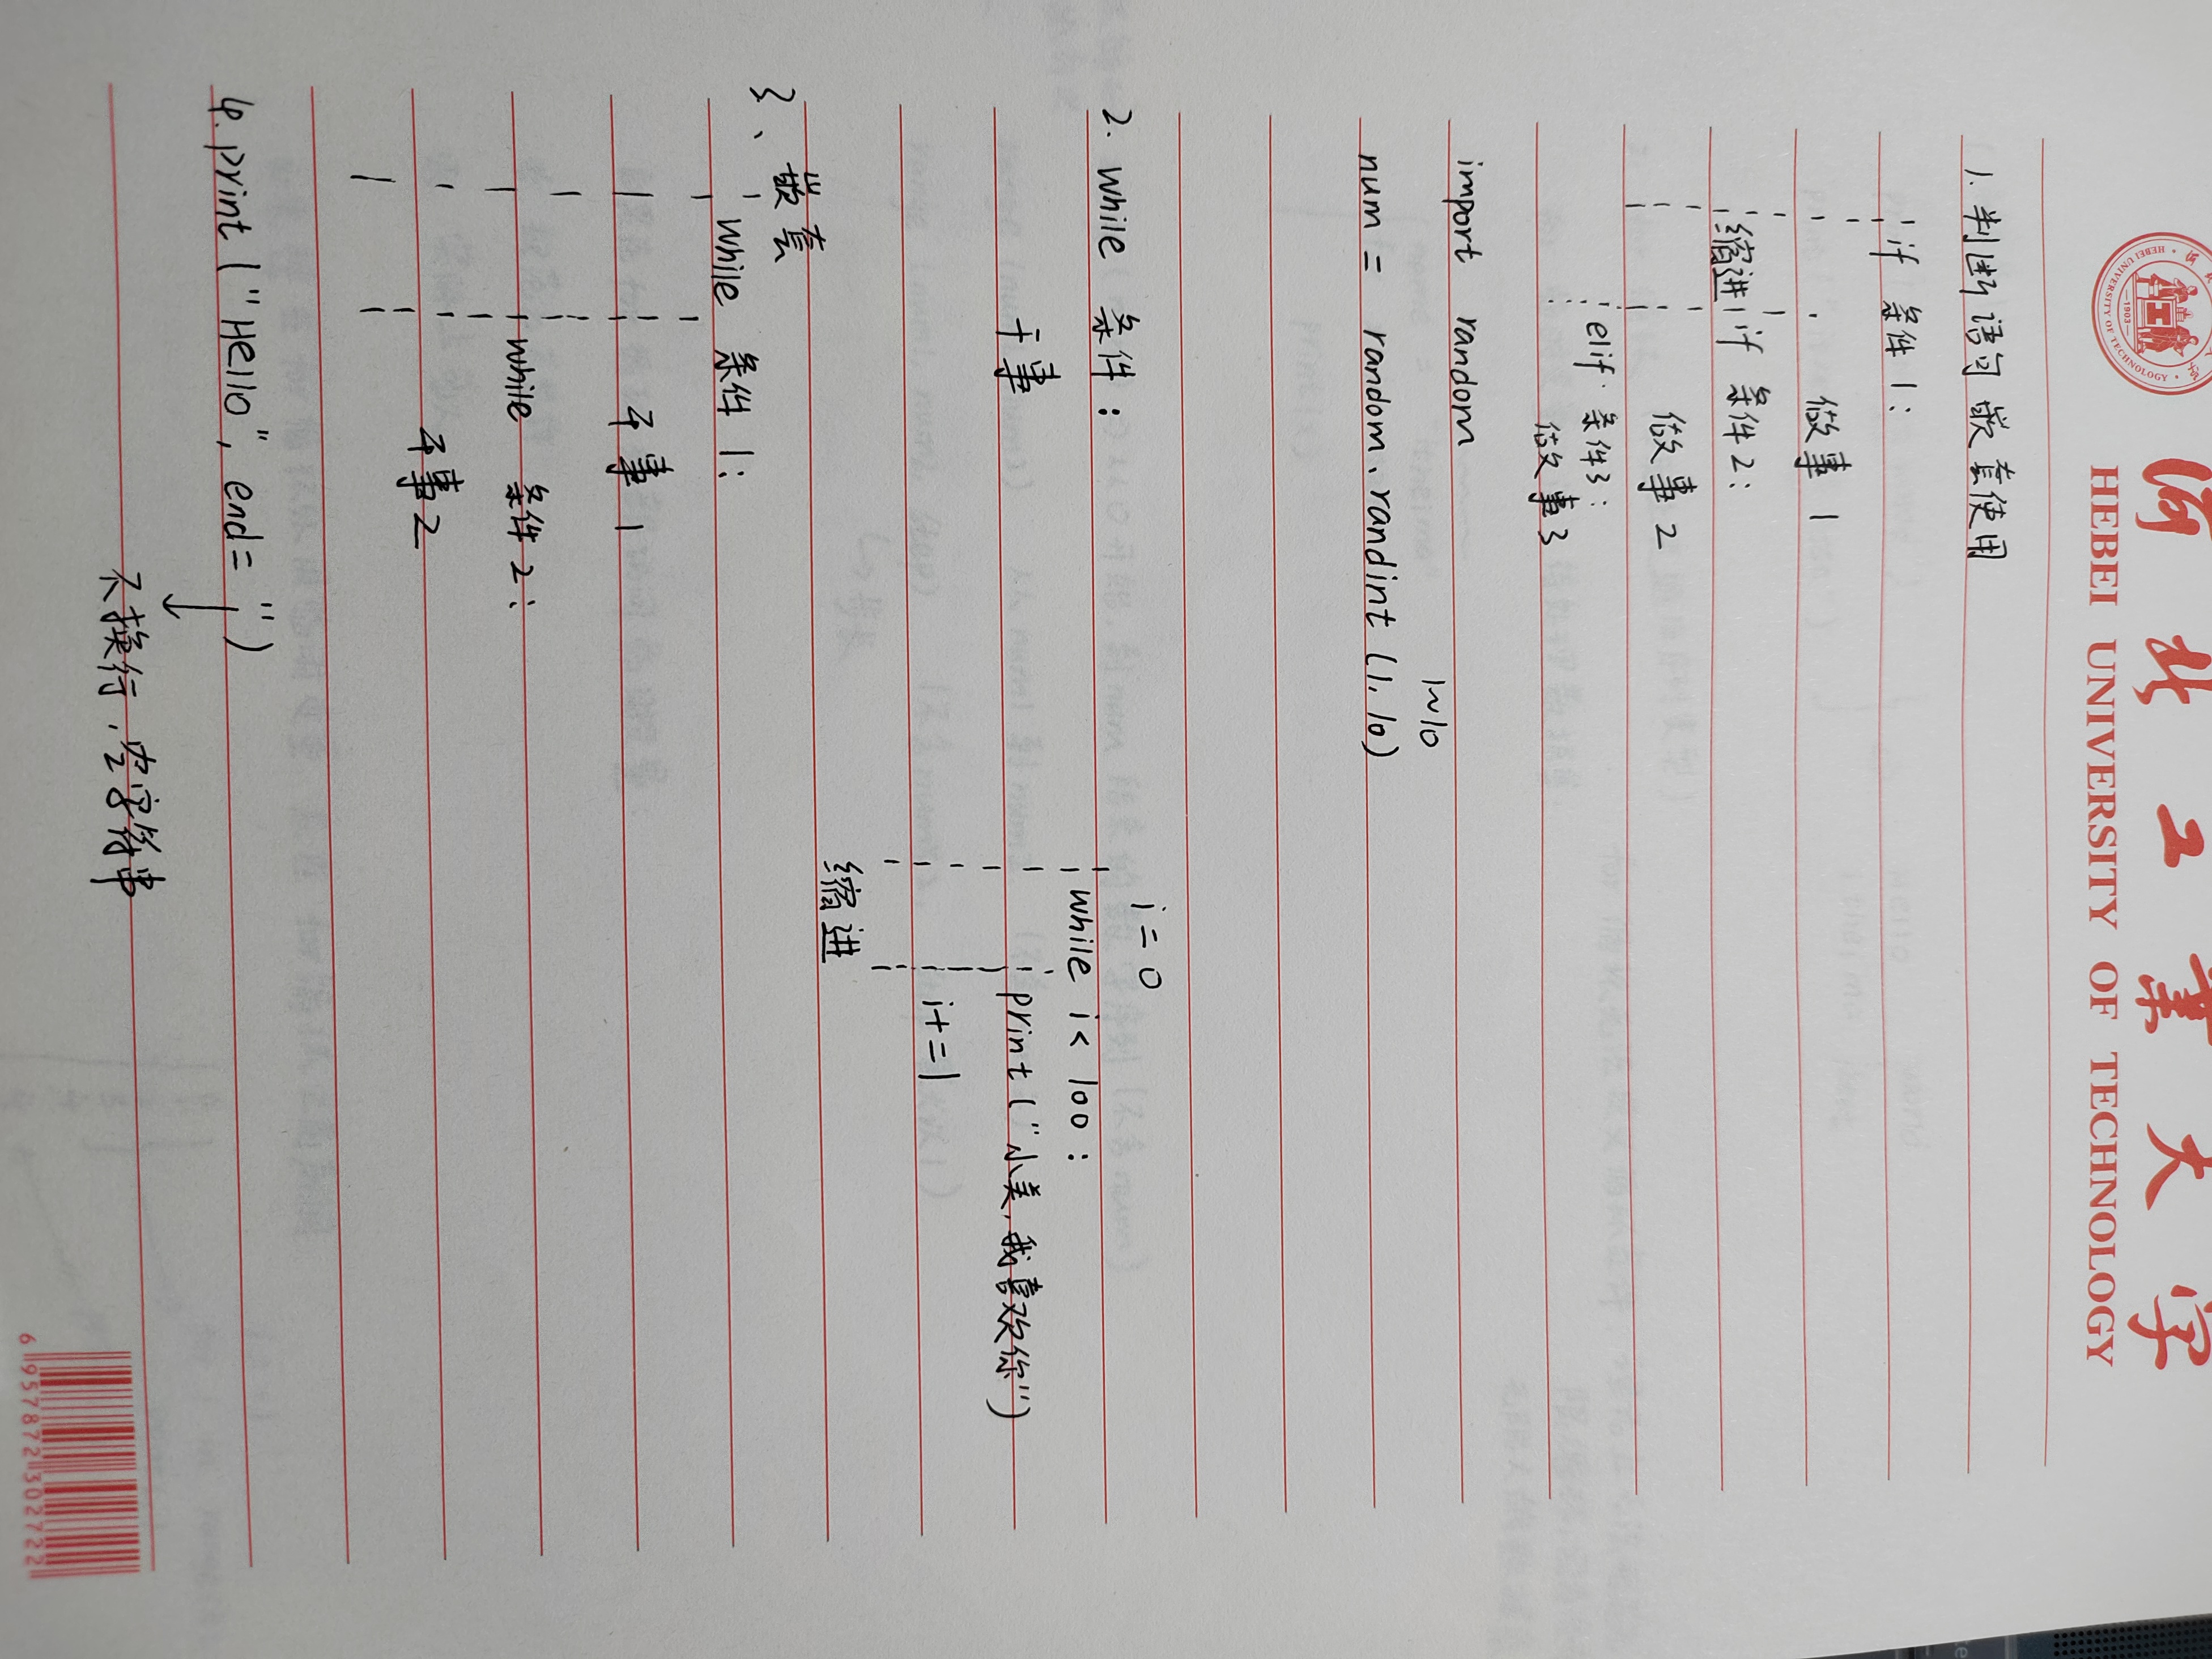 河北工業大学
HEBEI UNIVERSITY OF TECHNOLOGY
HEBEI UNIVERSITY OF TECHNOLOGY
1903
1. 判断语句嵌套使用
if 条件1:
做事1
缩进 if 条件2:
做事2
elif 条件3:
做事3
import random
1~10
num = random.randint (1, 10)
2. while 条件:
干事
i = 0
while i < 100:
print ("小美,我喜欢你")
i+=1
缩进
3、嵌套
while 条件1:
干事1
while 条件2:
干事2
4. print ("Hello", end= '')
不换行,空字符串
6 957872 302722